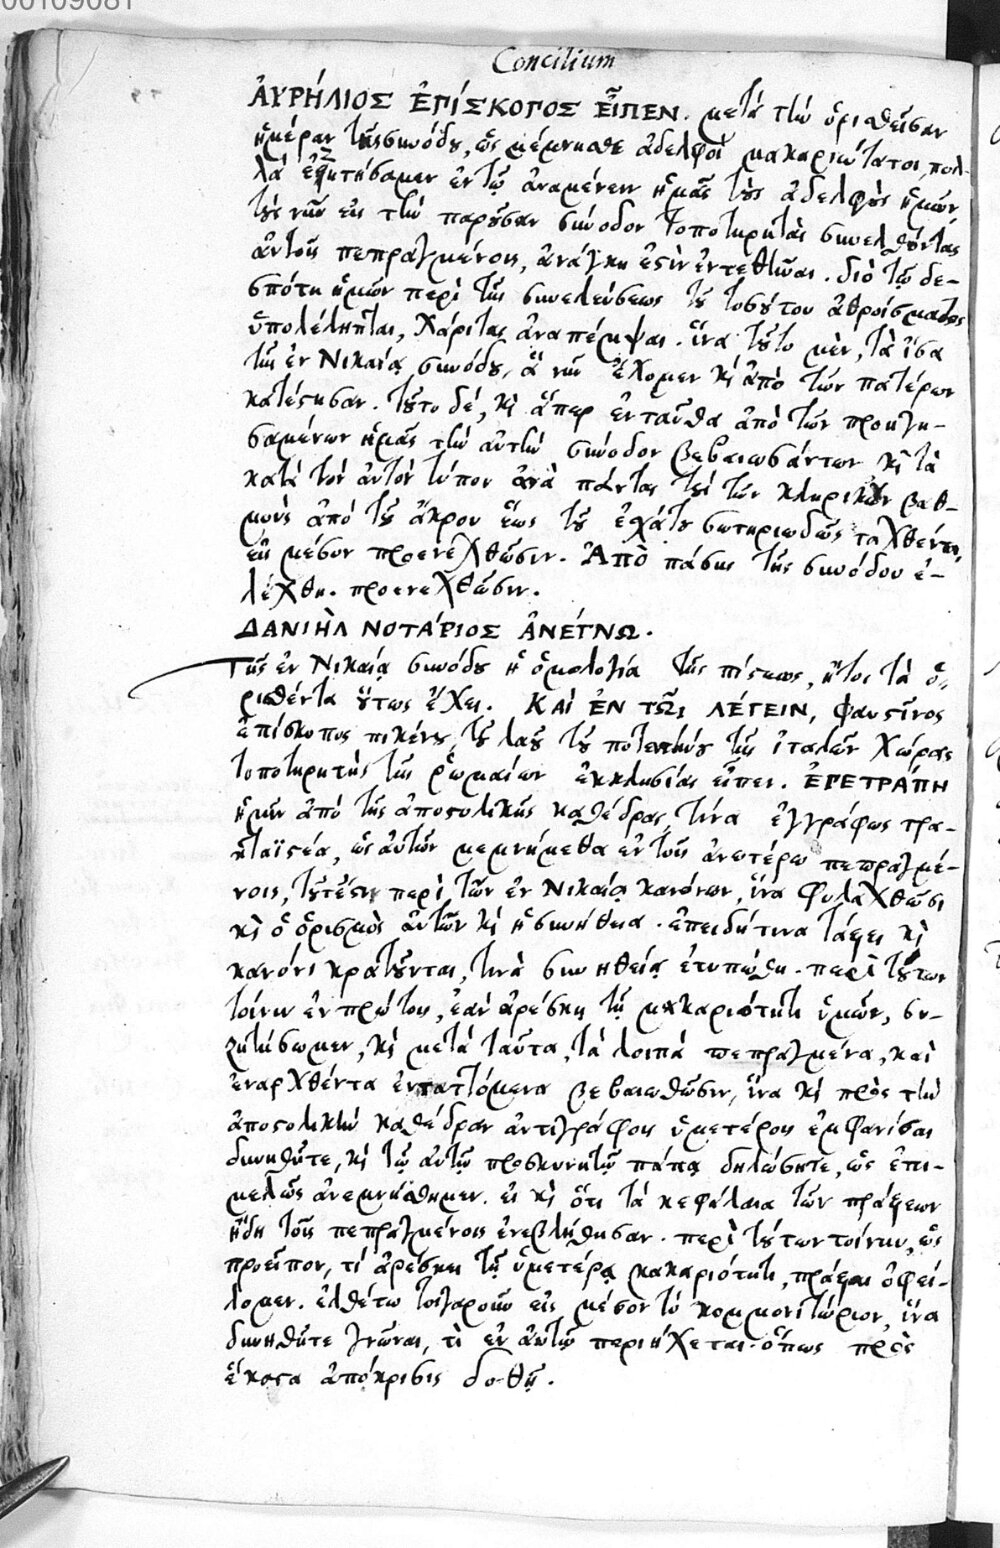 00109081
Concilium
ἈΥΡΉΛΙΟΣ ἘΠΊΣΚΟΠΟΣ ΕἾΠΕΝ. μετὰ τὴν ὁρισθεῖσαν
ἡμέραν τῆς συνόδου, ὡς μέμνησθε ἀδελφοὶ μακαριώτατοι, πολ-
λὰ ἐζητήσαμεν ἐν τῷ ἀναμένειν ἡμᾶς τοὺς ἀδελφοὺς ἡμῶν
τοὺς νῦν εἰς τὴν παροῦσαν σύνοδον τοποτηρητὰς συνελθόντας
αὐτοῖς πεπραγμένοις, ἀνάγκη ἐστὶν ἐντεθῆναι. διὸ τῷ δε-
σπότῃ ἡμῶν περὶ τῆς συνελεύσεως τοῦ τοσούτου ἀθροίσματος
ὑπολέληπται, χάριτας ἀναπέμψαι. ἵνα τοῦτο μὲν, τὰ ἴσα
τῆς ἐν Νικαίᾳ συνόδου, ἃ νῦν ἔχομεν κὶ ἀπὸ τῶν πατέρων
κατέστησαν. τοῦτο δέ, κὶ ἅπερ ἐνταῦθα ἀπὸ τῶν προηγη-
σαμένων ἡμᾶς τὴν αὐτὴν σύνοδον βεβαιωσάντων κὶ τὰ
κατὰ τὸν αὐτὸν τύπον ἀνὰ πάντας τοὺς τῶν κληρικῶν βαθ-
μοὺς ἀπὸ τοῦ ἄκρου ἕως τοῦ ἐσχάτου σωτηριωδῶς ταχθέντα,
εἰς μέσον προενεχθῶσιν. Ἀπὸ πάσης τῆς συνόδου ἐ-
λέχθη. προενεχθῶσιν.
ΔΑΝΙῊΛ ΝΟΤΆΡΙΟΣ ἈΝΈΓΝΩ.
Τῆς ἐν Νικαίᾳ συνόδου ἡ ὁμολογία τῆς πίστεως, ἤτοι τὰ ὁ-
ρισθέντα οὕτως ἔχει. ΚΑῚ ἘΝ ΤΩ͂Ι ΛΈΓΕΙΝ, Φαυστῖνος
ἐπίσκοπος πικένου, τοῦ λαοῦ τοῦ ποτεντίνου τῆς ἰταλῶν χώρας
τοποτηρητὴς τῆς ῥωμαίων ἐκκλησίας εἶπεν. ἘΠΕΤΡΆΠΗ
ἡμῖν ἀπὸ τῆς ἀποστολικῆς καθέδρας, τινα ἐγγράφως τρα-
κταϊστέα, ὡς αὐτῶν μεμνήμεθα ἐν τοῖς ἀνωτέρω πεπραγμέ-
νοις, τουτέστιν περὶ τῶν ἐν Νικαίᾳ κανόνων, ἵνα φυλαχθῶσι
κὶ ὁ ὁρισμὸς αὐτῶν κὶ ἡ συνήθεια. ἐπειδή τινα τάξει κὶ
κανόνι κρατοῦνται, τινὰ συνηθείᾳ ἐτυπώθη. περὶ τούτων
τοίνυν ἐν πρώτοις, ἐὰν ἀρέσκῃ τῇ μακαριότητι ὑμῶν, συ-
ζητήσωμεν, κὶ μετὰ ταῦτα, τὰ λοιπὰ πεπραγμένα, καὶ
ἐναρχθέντα ἐνταττόμενα βεβαιωθῶσιν, ἵνα κὶ πρὸς τὴν
ἀποστολικὴν καθέδραν ἀντιγράφοις ὑμετέροις ἐμφανίσαι
δυνηθῆτε, κὶ τῷ αὐτῷ προσκυνητῷ πάπᾳ δηλώσητε, ὡς ἐπι-
μελῶς ἀνεμνήσθημεν. εἰ κὶ ὅτι τὰ κεφάλαια τῶν πράξεων
ἤδη τοῖς πεπραγμένοις ἐνεβλήθησαν. περὶ τούτων τοίνυν, ὡς
προεῖπον, τί ἀρέσκει τῇ ὑμετέρᾳ μακαριότητι, πρᾶξαι ὀφεί-
λομεν. ἐλθέτω τοιγαροῦν εἰς μέσον τὸ κομμονιτώριον, ἵνα
δυνηθῆτε γνῶναι, τὶ ἐν αὐτῷ περιήχεται. ὅπως πρὸς
ἕκαστα ἀπόκρισις δοθῇ.